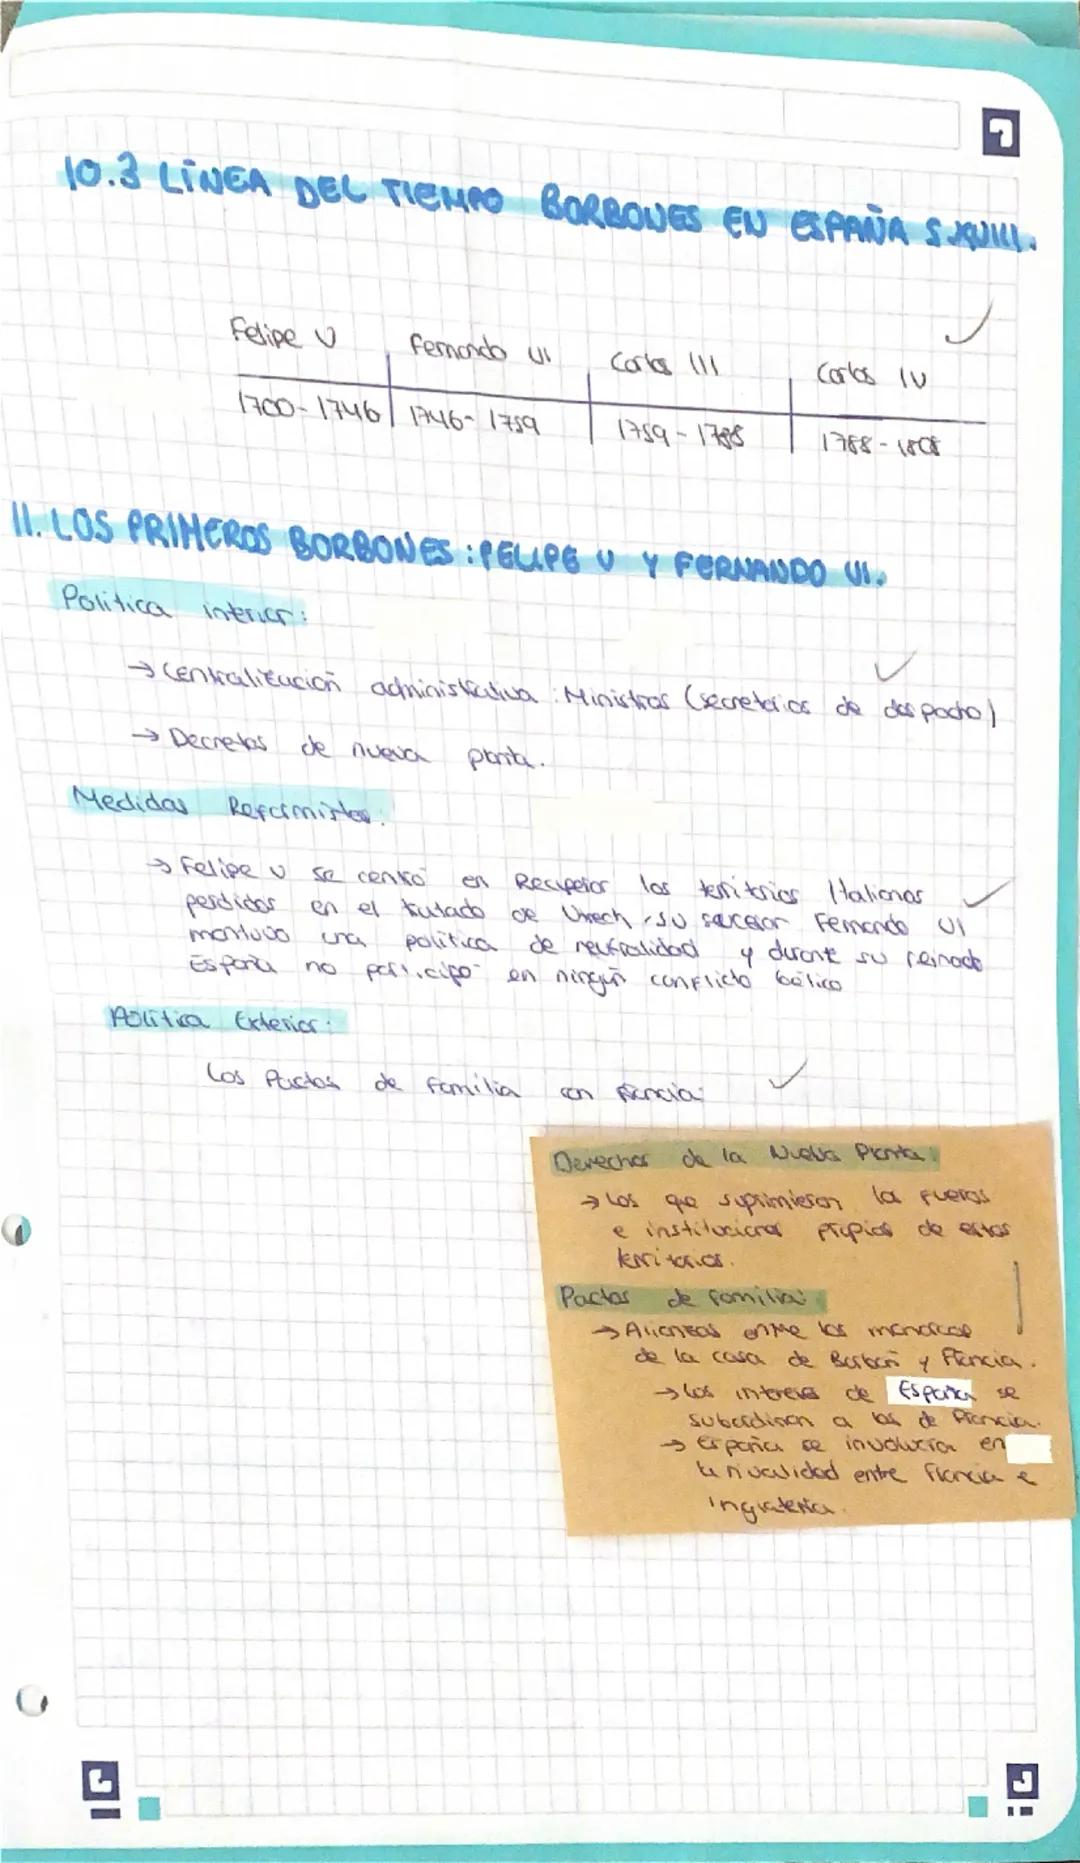 10.3 LÍNEA DEL TIEMPO BORBONES EN ESPAÑA S.XVIII.
Felipe V Fernando VI Carlos III Carlos IV
1700-1746 1746-1759 1759-1788 1788-1808
11. LOS PRIMEROS BORBONES: FELIPE V Y FERNANDO VI.
Política interior:
→ Centralización administrativa: Ministros (secretarios de despacho)
→ Decretos de nueva planta.
Medidas Reformistas:
→ Felipe V se centró en Recuperar los territorios Italianos
perdidos en el tratado de Utrech, su sucesor Fernando VI
mantuvo una política de neutralidad y durante su reinado
España no participó en ningún conflicto bélico
Política Exterior:
Los Pactos de familia con Francia:
Derechos de la Nueva Planta:
→ Los que suprimieron los fueros
e instituciones propias de estos
territorios.
Pactos de familia:
→ Alianzas entre los monarcas
de la casa de Borbón y Francia.
→ Los intereses de España se
subordinan a los de Francia.
→ España se involucra en
la rivalidad entre Francia e
Inglaterra.